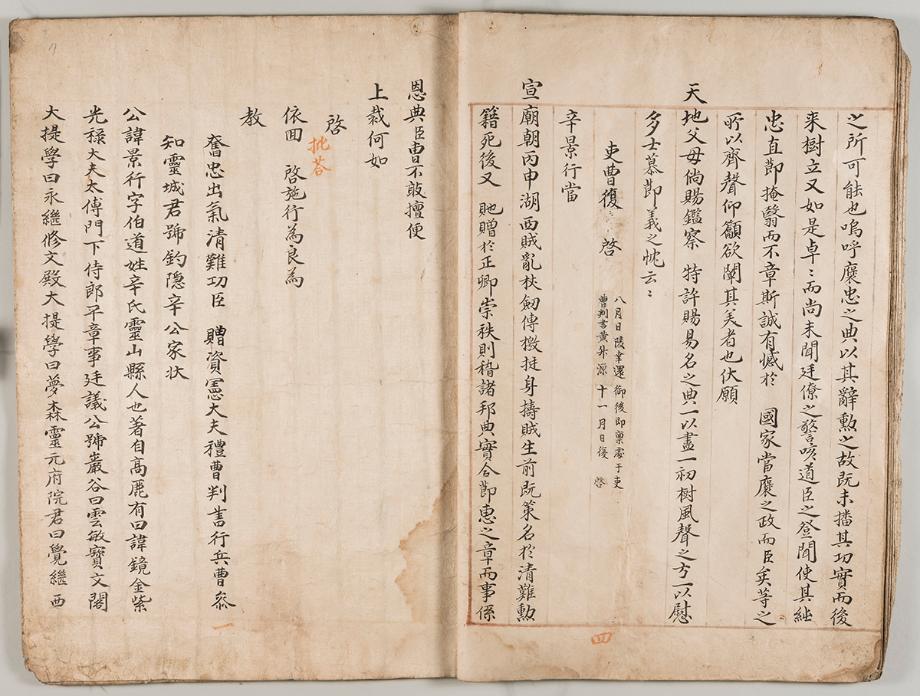 之所可能也嗚呼褒忠之典以其辭勳之故旣未播其功實而後
來樹立又如是卓〻而尚未聞廷僚之警咳道臣之登聞使其純
忠直節掩翳而不章斯誠有憾於 國家當褒之政而臣矣等之
所以齊聲仰籲欲闡其美者也伏願
天
地父母倘賜鑑察 特許賜易名之典一以盡一初树風聲之方一以慰
多士慕節義之忱云〻
吏曹復 啓
八月日陵幸還 御後即稟處于吏
曹判書黃昇源 十一月日復 啓
辛景行當
宣
廟朝丙申湖西賊亂杖劒傳檄挺身擣賊生前旣策名於清難勲
籍死後又 貤贈於正卿崇秩則稽諸邦典實合節惠之章而事係
恩典臣曹不敢擅便
上裁何如
啓
批荅
依回 啓施行為良為
教
奮忠出氣清難功臣 贈資憲大夫禮曹判書行兵曹叅
知靈城君號釣隐辛公家状
公諱景行字伯道姓辛氏靈山縣人也著自髙麗有曰諱鏡金紫
光祿大夫太傅門下侍郎平章事廷議公號巖谷曰雲敏寶文閣
大提學曰永繼修文殿大提學曰夢森靈元府院君曰覺繼西
一
四